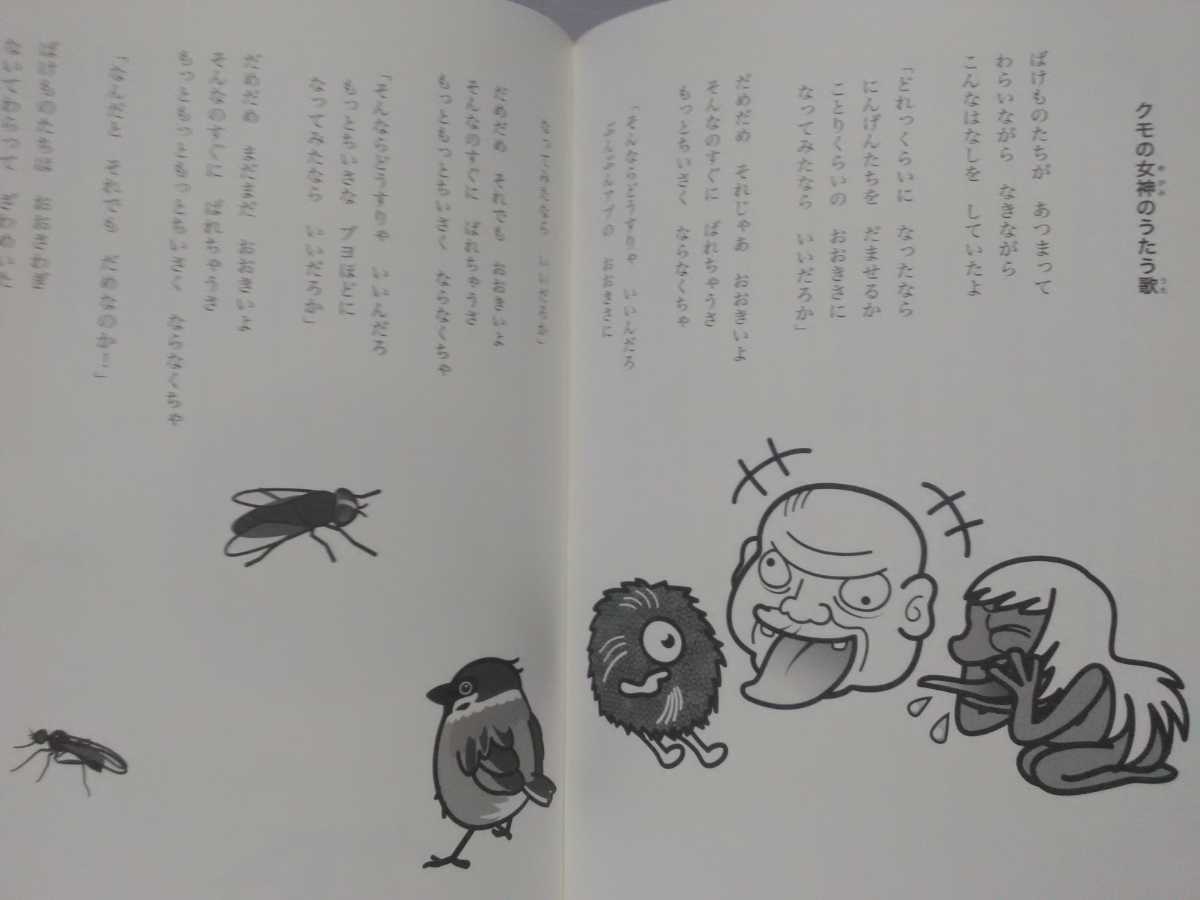 クモの女神のうたう歌
ばけものたちが　あつまって
わらいながら　なきながら
こんなはなしを　していたよ
「どれっくらいに　なったなら
にんげんたちを　だませるか
ことりくらいの　おおきさに
なってみたなら　いいだろか」
だめだめ　それじゃあ　おおきいよ
そんなのすぐに　ばれちゃうさ
もっとちいさく　ならなくちゃ
「そんならどうすりゃ　いいんだろ
おおきさに
なってみたなら　いいだろか」
だめだめ　それでも　おおきいよ
そんなのすぐに　ばれちゃうさ
もっともっとちいさく　ならなくちゃ
「そんならどうすりゃ　いいんだろ
もっとちいさな　ブヨほどに
なってみたなら　いいだろか」
だめだめ　まだまだ　おおきいよ
そんなのすぐに　ばれちゃうさ
もっともっともっとちいさく　ならなくちゃ
「なんだと　それでも　だめなのか!!」
ばけものたちは　おおさわぎ
ないてわらって　ざわめいた